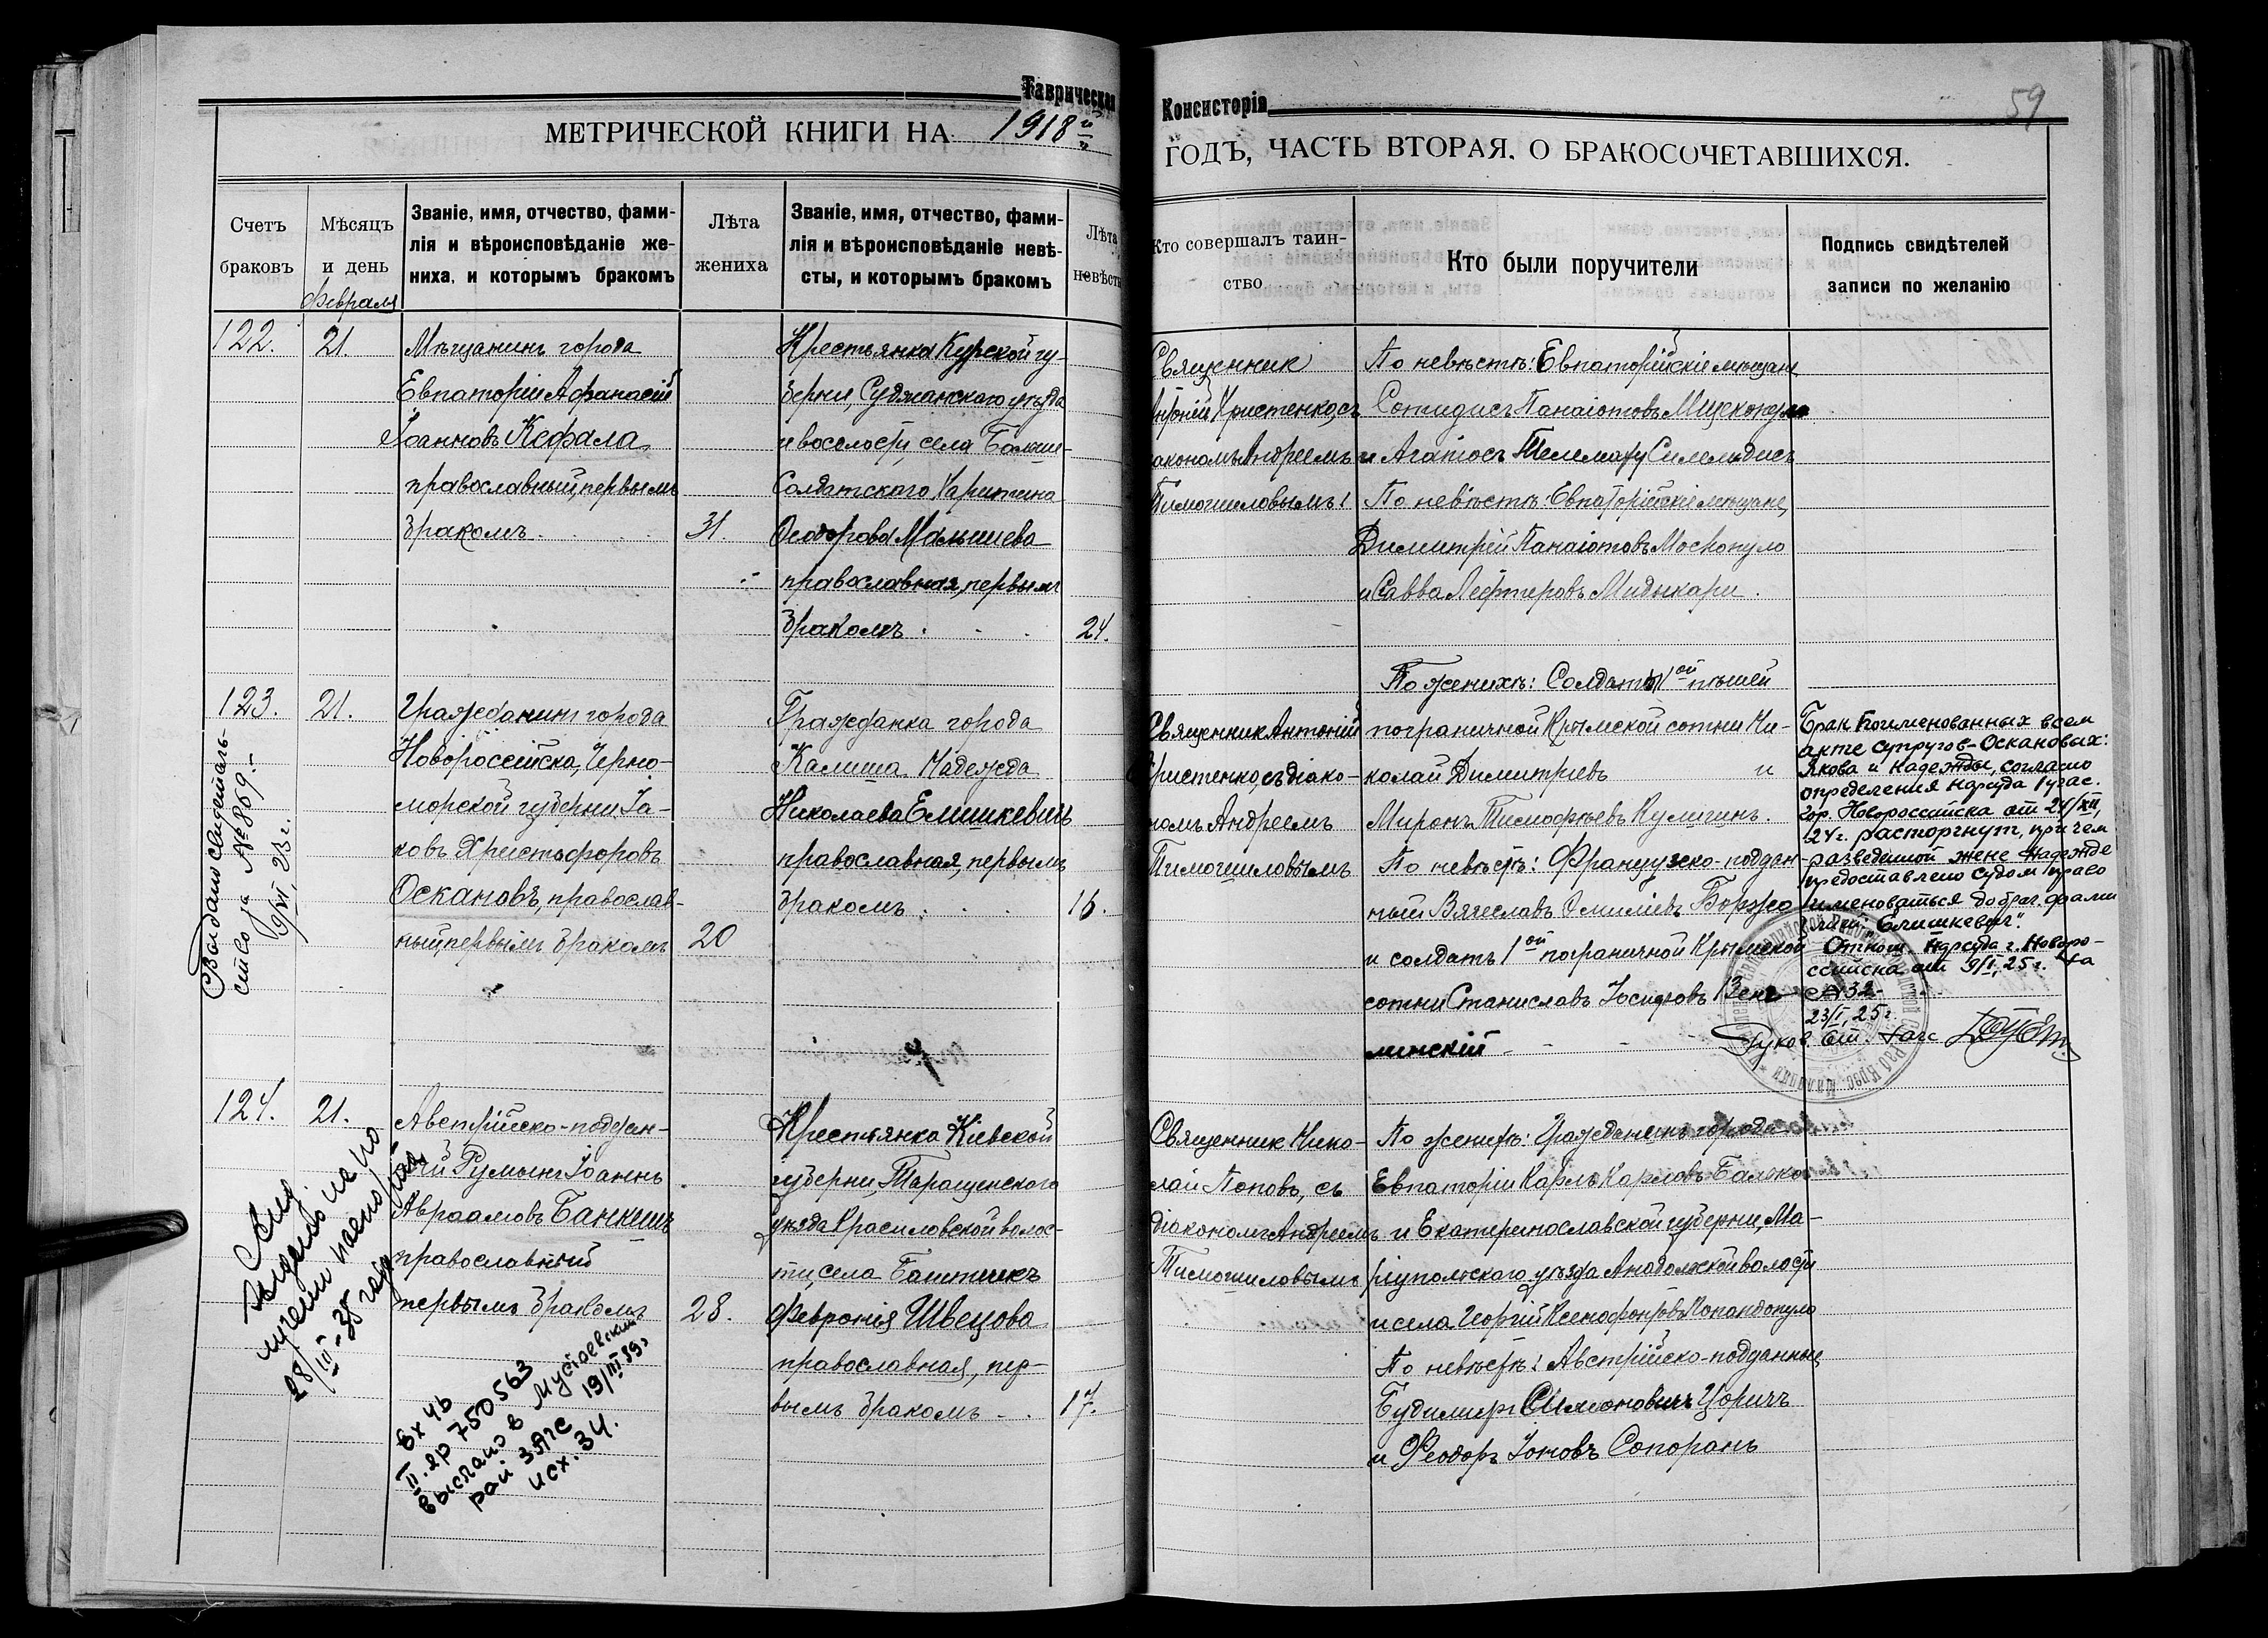 Таврическая Консисторія
59
МЕТРИЧЕСКОЙ КНИГИ НА 1918й
ГОДЪ, ЧАСТЬ ВТОРАЯ, О БРАКОСОЧЕТАВШИХСЯ.
Счетъ браковъ
Мѣсяцъ и день
Февраля
Званіе, имя, отчество, фами-
лія и вѣроисповѣданіе же-
ниха, и которымъ бракомъ
Лѣта
жениха
Званіе, имя, отчество, фами-
лія и вѣроисповѣданіе невѣ-
сты, и которымъ бракомъ
Лѣта
невѣсты
Кто совершалъ таин-
ство
Кто были поручители
Подпись свидѣтелей
записи по желанію
122.
21.
Мѣщанинъ города
Евпаторіи Афанасій
Іоанновъ Кефала,
православный, первымъ
бракомъ.
31.
Крестьянка Курской гу-
берніи, Суджанскаго уѣзда
и волости, села
Солдатскаго Харитина
Ѳеодорова Малышева
православная, первымъ
бракомъ.
24.
Священник
Антоній Христенко, съ
діакономъ Андреемъ
Тимошиловымъ
По невѣстѣ: Евпаторійскіе мѣщане
Сотидисъ Панаіотовъ
и Агапіосъ
По невѣстѣ: Евпаторійскіе мѣщане,
Димитрій Панаіотовъ Москопуло
и Савва Лефтеровъ
123.
21.
Гражданинъ города
Новороссійска, Черно-
морской губерніи Іа-
ковъ Христофоровъ
Оскановъ, православ-
ный, первымъ бракомъ
20
Гражданка города
Калиша Надежда
Николаева Елишкевичъ
православная, первымъ
бракомъ.
16.
Священник Антоній
Христенко, съ діако-
номъ Андреемъ
Тимошиловымъ
По женихѣ: Солдаты 1ой пѣшей
пограничной Крымской сотни Ни-
колай Димитріевъ и
Миронъ Тимофѣевъ Кулигинъ.
По невѣстѣ: Французско-поддан-
ный Вячеславъ Эмиліевъ Боржо
и солдатъ 1ой пограничной Крымской
сотни Станиславъ Іосифовъ
минскій
Брак поименованных всем
акте супругов-Оскановых:
Якова и Надежды, согласно
определения Нарсуда 1 участ.
гор. Новороссийска от 24/XII,
124 г. расторгнут, причем
разведенной жене Надежде
предоставлено судом право
именоваться добрач. фами
лией: "Елишкевич".
Отнош. Нарсуда г. Новоро-
ссийска от 9/I, 25 г. за
№32-
23/I, 25 г.
Руков. От. Загс
Выдано свидетель-
ство за № 869.-
9/VI, 23 г.
124.
21.
Австрійско-поддан-
ный Румынъ Іоаннъ
Авраамовъ Банкишъ
православный
первымъ бракомъ
28.
Крестьянка Кіевской
губерніи, Таращенскаго
уѣзда Красиловской волос-
ти, села Баштинкъ
Февронія Швецова
православная, пер-
вымъ бракомъ
17.
Священник Нико-
лай Поповъ, съ
діакономъ Андреемъ
Тимошиловымъ
По женихѣ: Гражданинъ города
Евпаторіи Карлъ Карловъ
и Екатеринославской губерніи, Ма-
ріупольскаго уѣзда Анадольской волости
и села Георгій Ксенофонтовъ Копандопуло
По невѣстѣ: Австрійско-подданные
Будимиръ Симоновичъ Цоричъ
и Ѳеодоръ Іоновъ Сопоранъ
Свид.
выдано на по
лучении паспорта
28/III-35 года
Вх 46
II. гр 750563
выслано в Мустаевский
рай ЗАГС 19/III 59г
исх. 34.